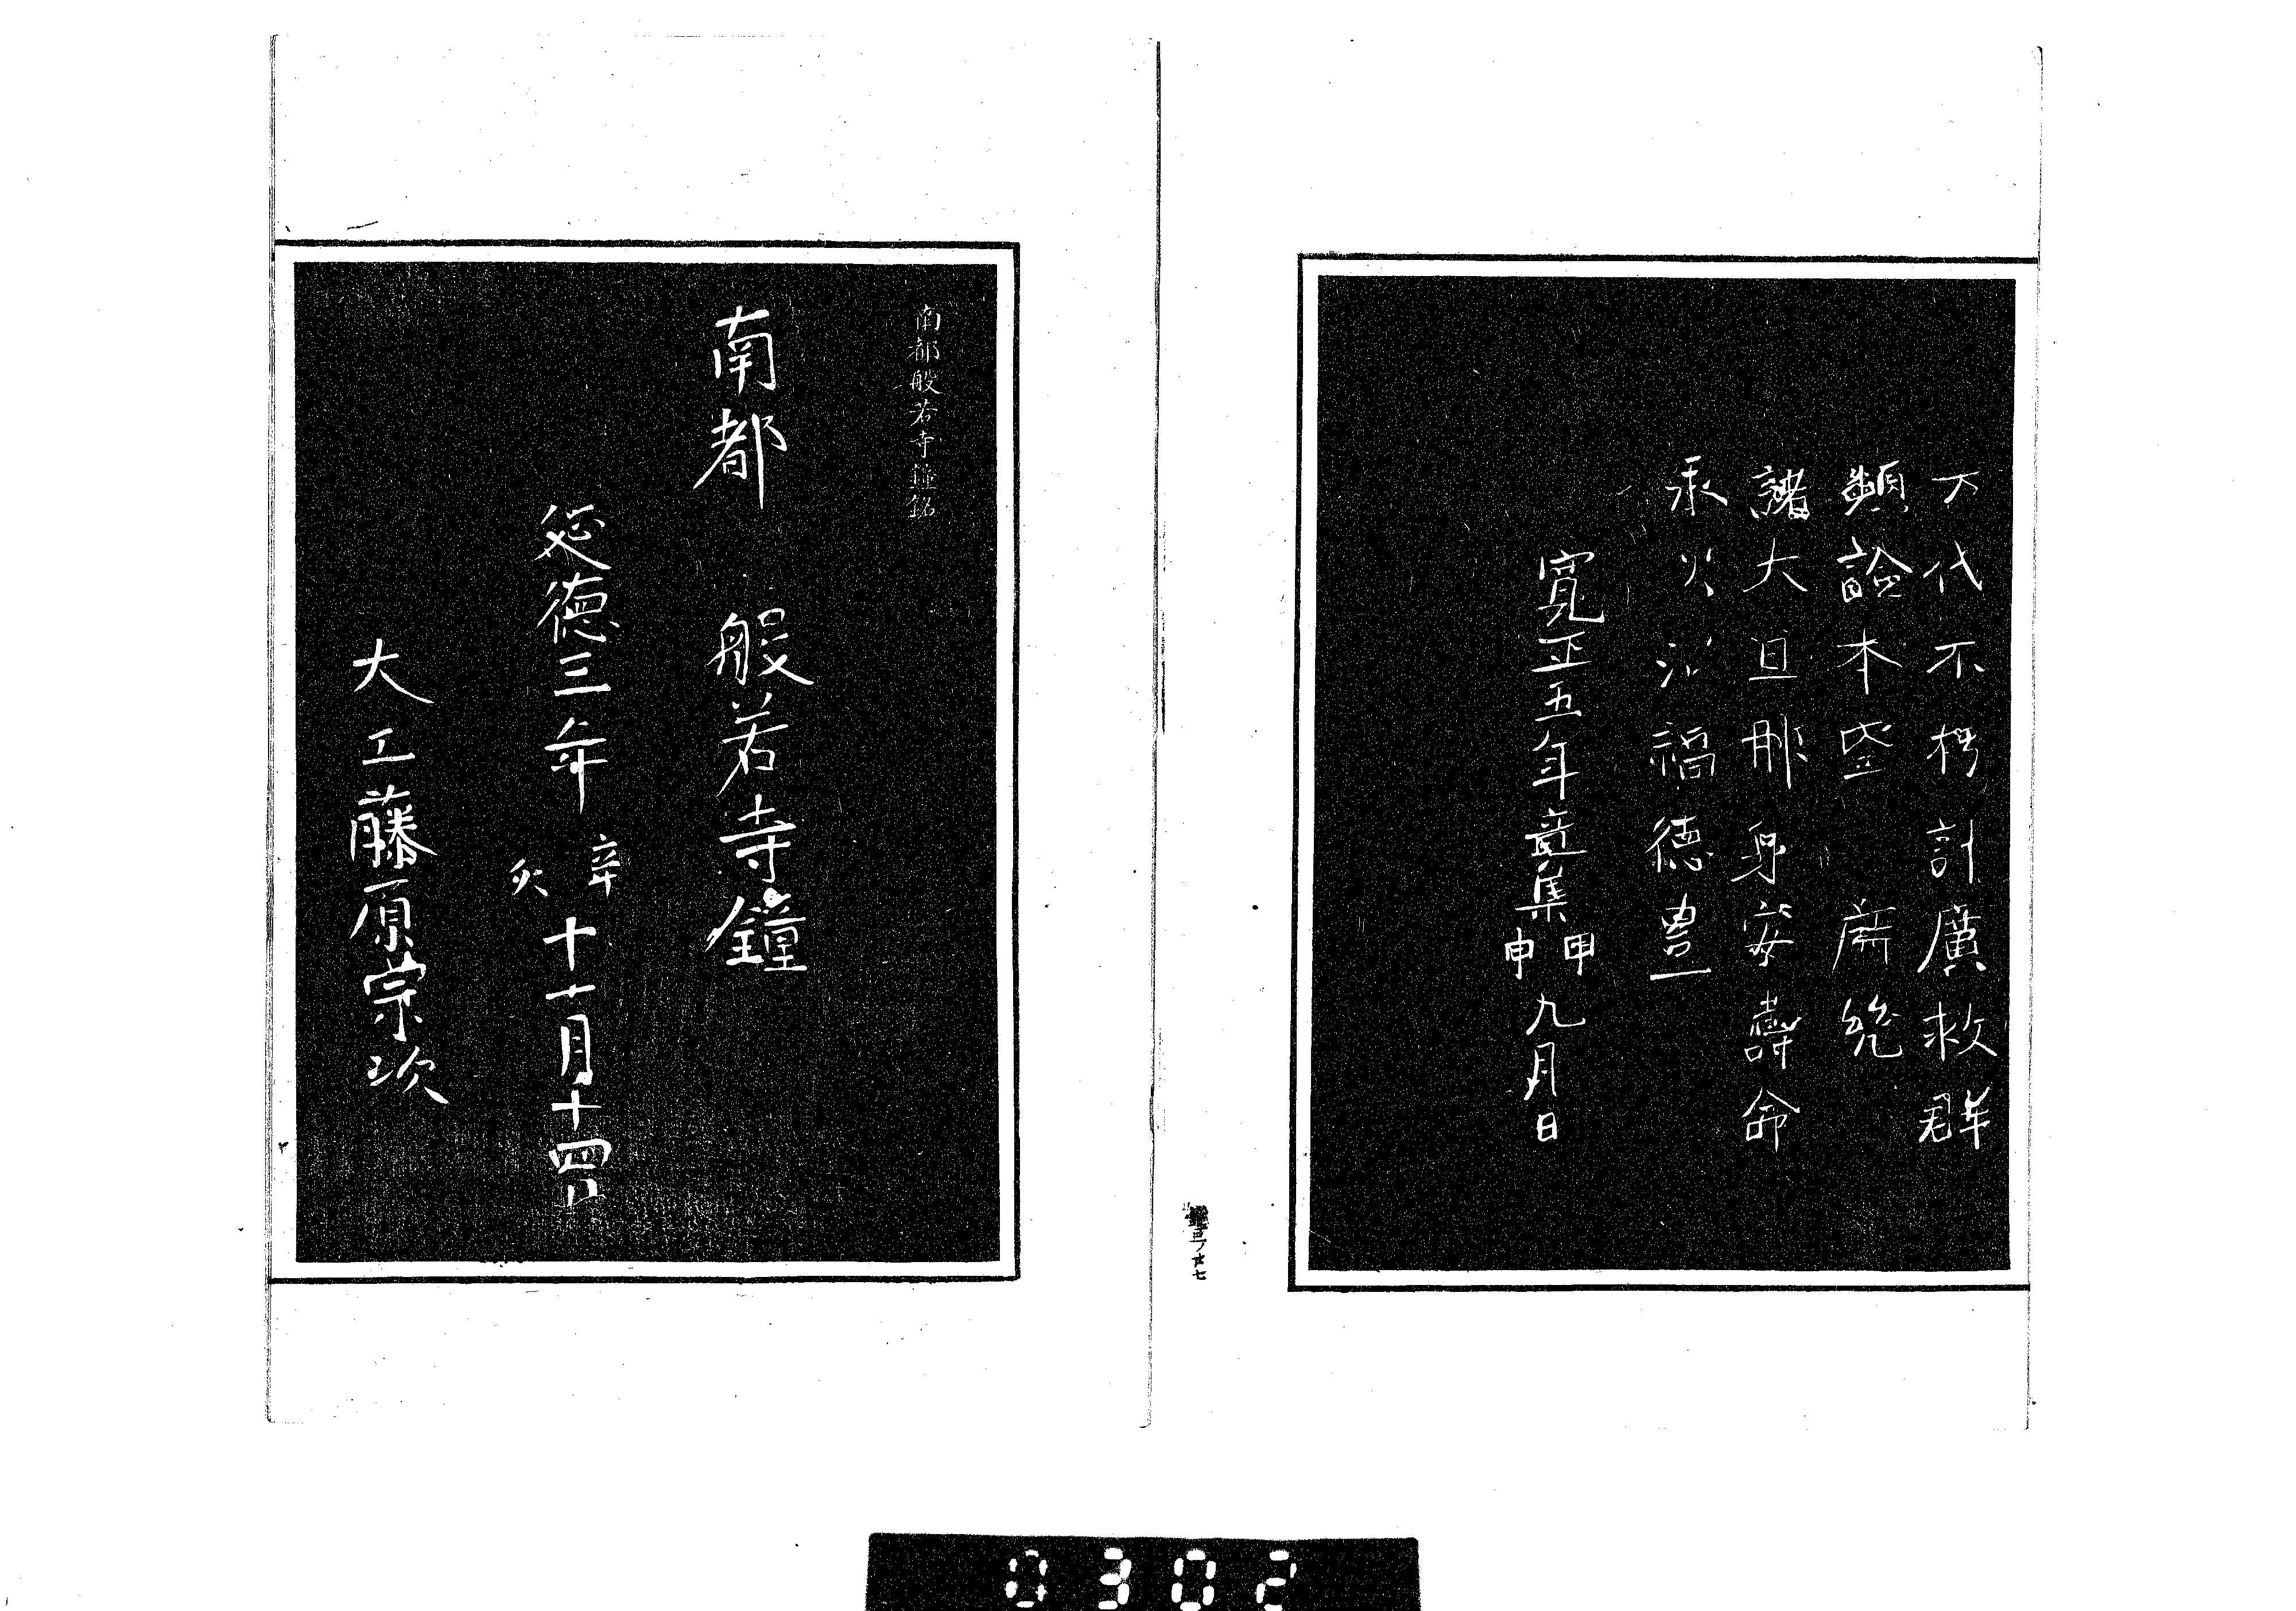 万代不朽計廣救群
類諭本 齊
諸大旦那身安壽命
永久 福徳豊
寛正五年 集甲申九月日
南都般若寺鐘銘
南都 般若寺鐘
延徳三年辛亥十一月十四日
大工藤原宗次
0302